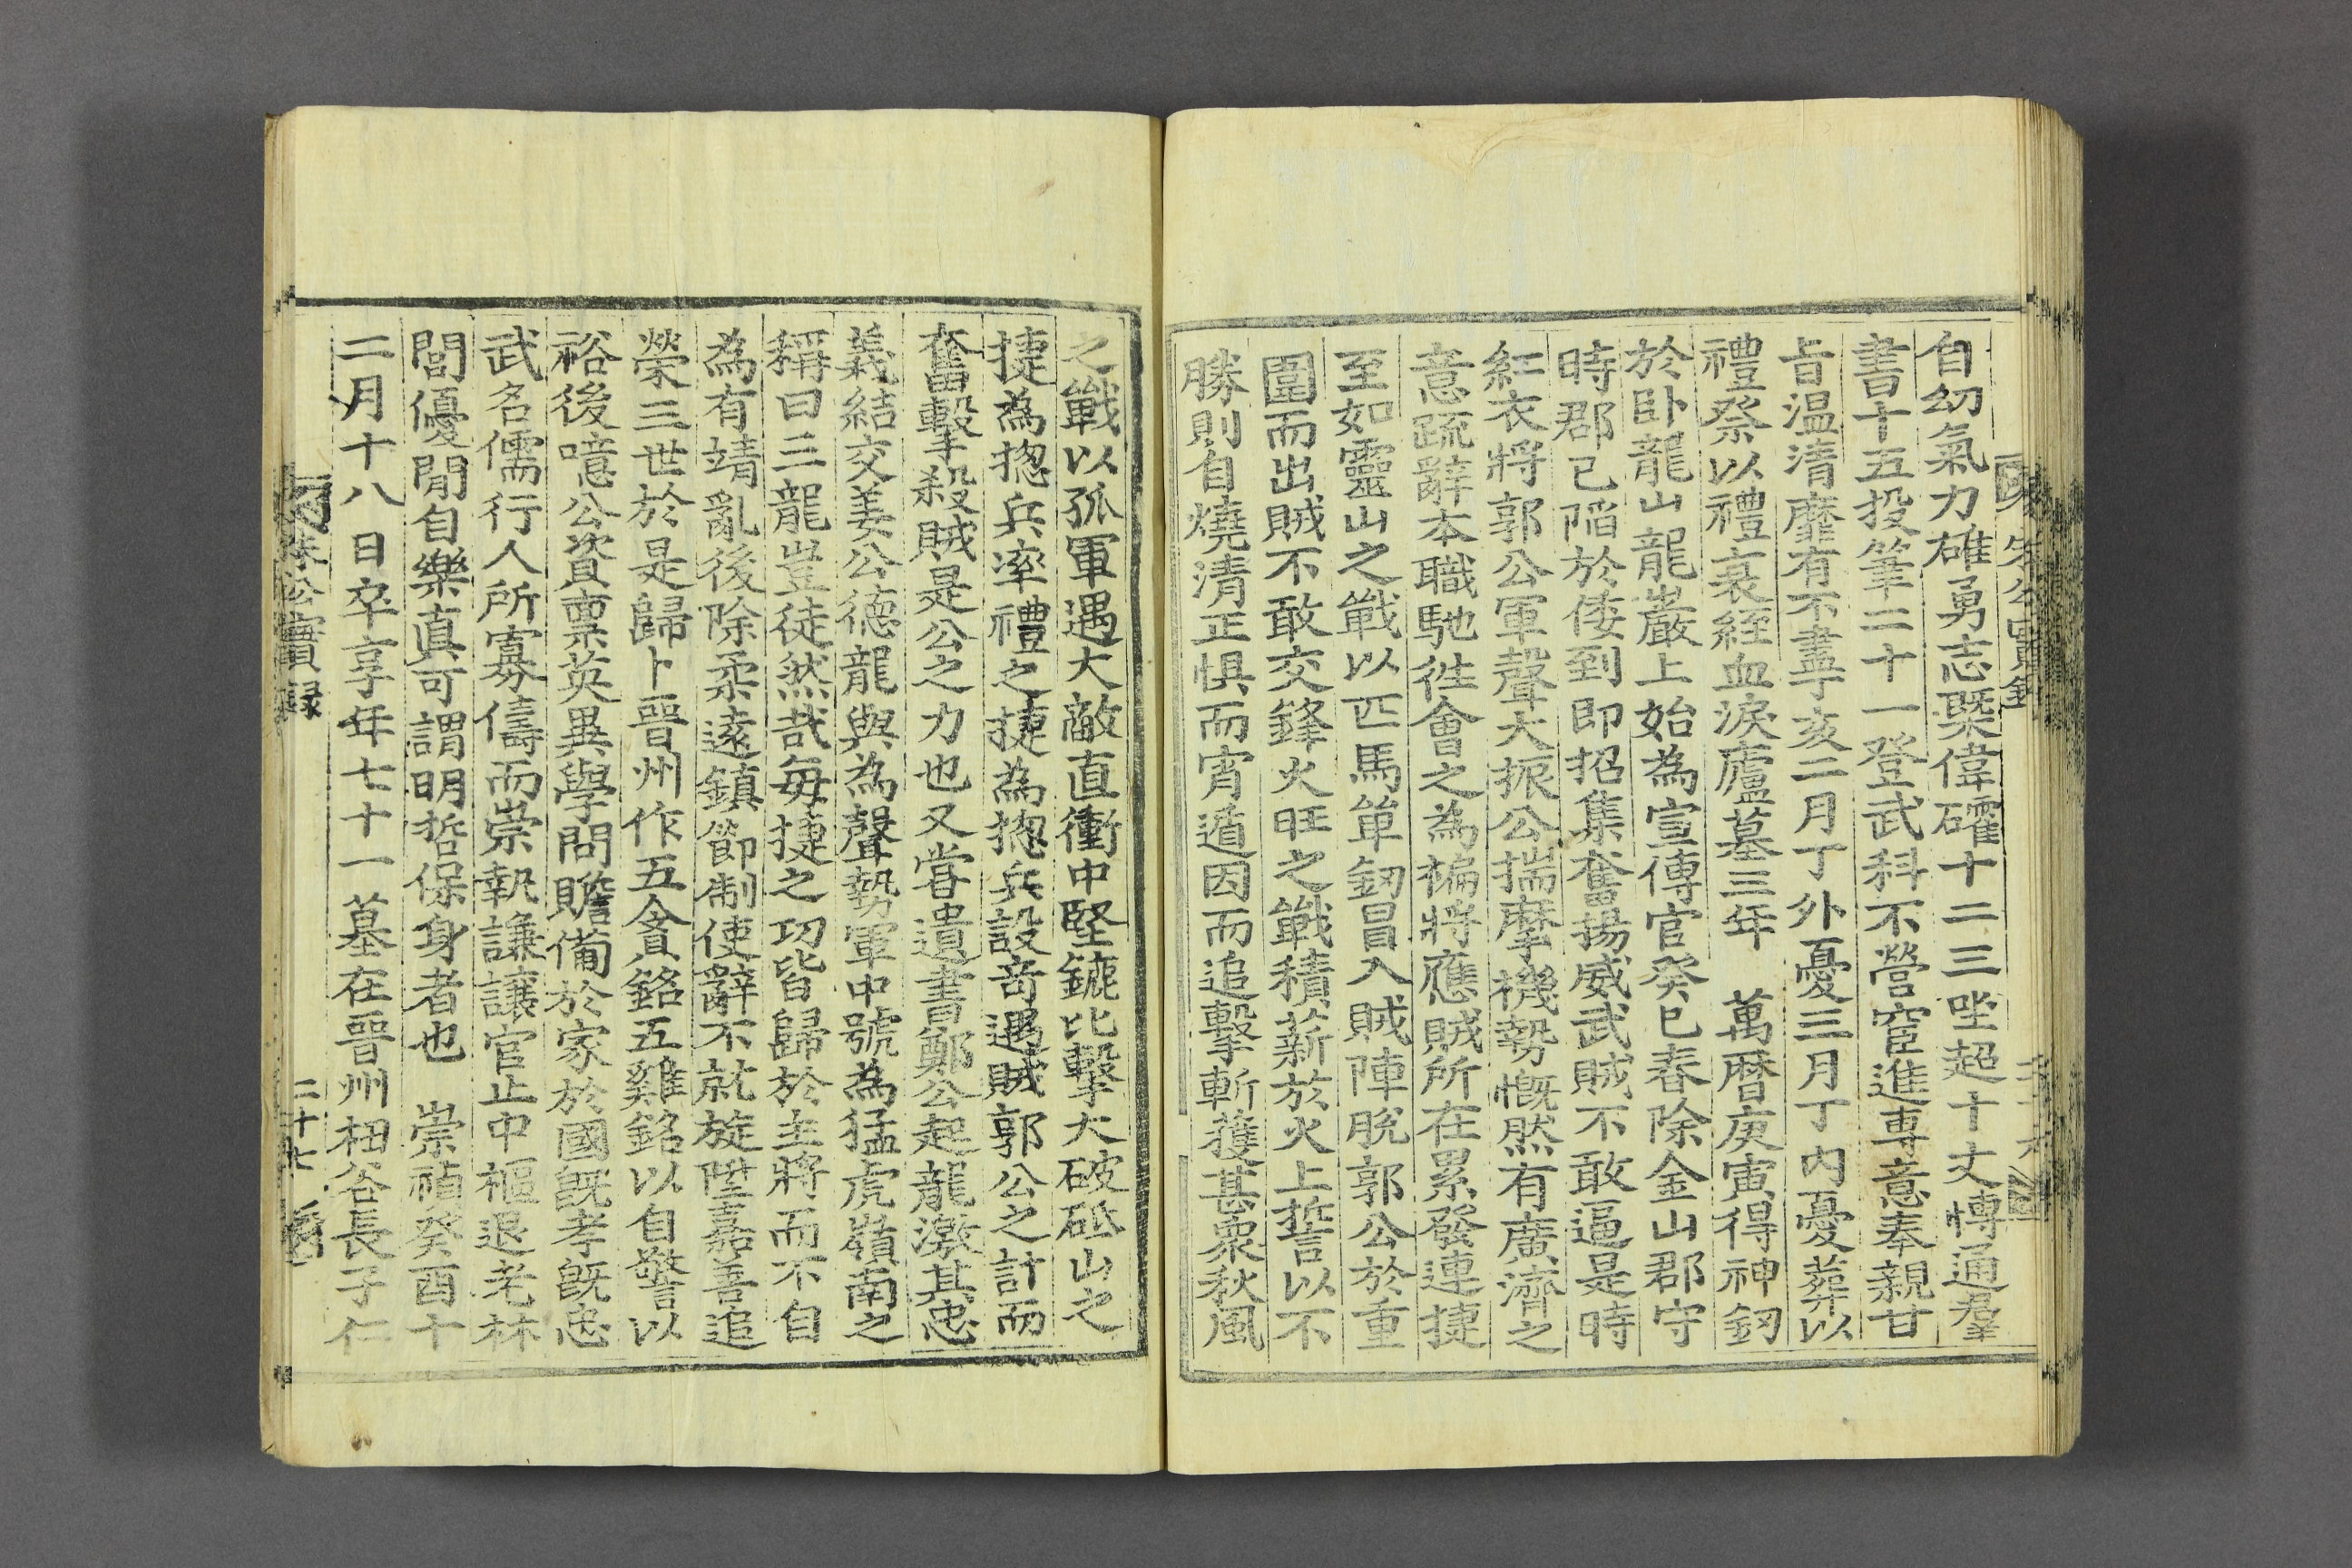 自幼氣力雄勇志槩偉礭十二三唑超十丈愽通羣
書十五投筆二十一登武科不營宦進專意奉親甘
旨温清靡有不盡丁亥二月丁外憂三月丁内憂葬以
禮祭以禮衰絰血淚廬墓三年 萬曆庚寅得神釰
於卧龍山龍巖上始為宣傳官癸巳春除金山郡守
時郡已陷於倭到即招集奮揚威武賊不敢逼是時
紅衣將郭公軍聲大振公揣摩機勢慨然有廣濟之
意疏辭本職馳徃會之為褊將應賊所在累發連捷
至如靈山之戰以匹馬單釰冒入賊陣脫郭公於重
圍而出賊不敢交鋒火旺之戰積薪於火上誓以不
勝則自燒清正惧而宵遁因而追擊斬獲甚衆秋風
之戰以孤軍遇大敵直衝中堅鏕比擊大破砥山之
捷為揔兵率禮之捷為揔兵設竒遇賊郭公之計而
奮擊殺賊是公之力也又甞遺書鄭公起龍激其忠
義結交姜公德龍與為聲勢軍中號為猛虎嶺南之
稱曰三龍豈徒然哉每捷之功皆歸於主將而不自
為有靖亂後除柔遠鎮節制使辭不就旋陞嘉善追
榮三世於是歸卜晉州作五貪銘五雞銘以自警以
裕後噫公資禀英異學問贍備於家於國旣孝旣忠
武名儒行人所寡儔而崇執謙讓官止中樞退老林
閭優閒自樂眞可謂明哲保身者也 崇禎癸酉十
二月十八日卒享年七十一墓在晉州杻谷長子仁
朱公實録
二十七